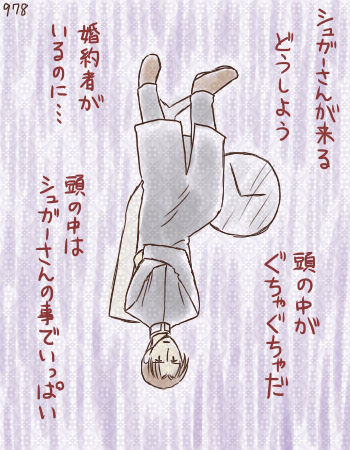 978
シュガーさんが来る
どうしよう
頭の中が
ぐちゃぐちゃだ
婚約者が
いるのに…
頭の中は
シュガーさんの事でいっぱい